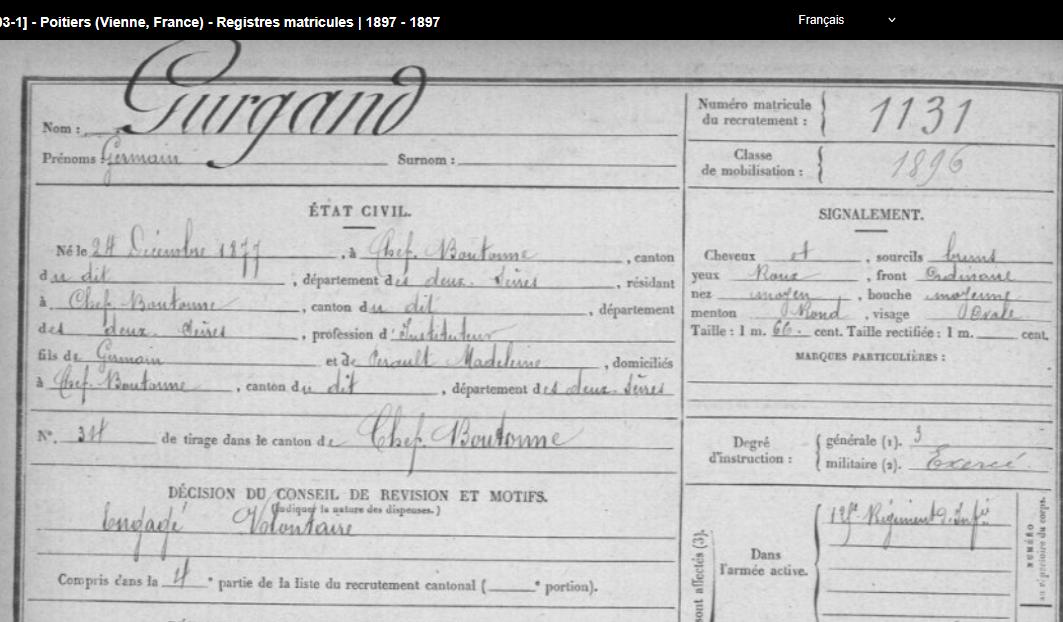 03-1] - Poitiers (Vienne, France) - Registres matricules | 1897 - 1897
Français
Nom : Gurgand
Prénoms Germain Surnom :
Numéro matricule du recrutement : 1131
Classe de mobilisation : 1896
ÉTAT CIVIL.
Né le 24 Décembre 1877, à Chef. Boutonne, canton
du dit, département des deux. Sèvres, résidant
à Chef. Boutonne, canton du dit, département
des deux. Sèvres, profession d'Instituteur
fils de Germain et de Madeleine, domiciliés
à Chef. Boutonne, canton du dit, département des deux. Sèvres
N°. 34 de tirage dans le canton de Chef. Boutonne
DÉCISION DU CONSEIL DE REVISION ET MOTIFS.
(Indiquer la nature des dispenses.)
Engagé Volontaire
Compris dans la 4e partie de la liste du recrutement cantonal ( e portion).
SIGNALEMENT.
Cheveux et, sourcils bruns
yeux Roux, front Ordinaire
nez moyen, bouche moyenne
menton Rond, visage Ovale
Taille : 1 m. 66. cent. Taille rectifiée : 1 m. cent.
MARQUES PARTICULIÈRES :
Degré d'instruction :
générale (1). 3
militaire (2). Exercé.
sont affectés (3).
Dans l'armée active.
Régiment d'Infie
NUMÉRO
au répertoire du corps.